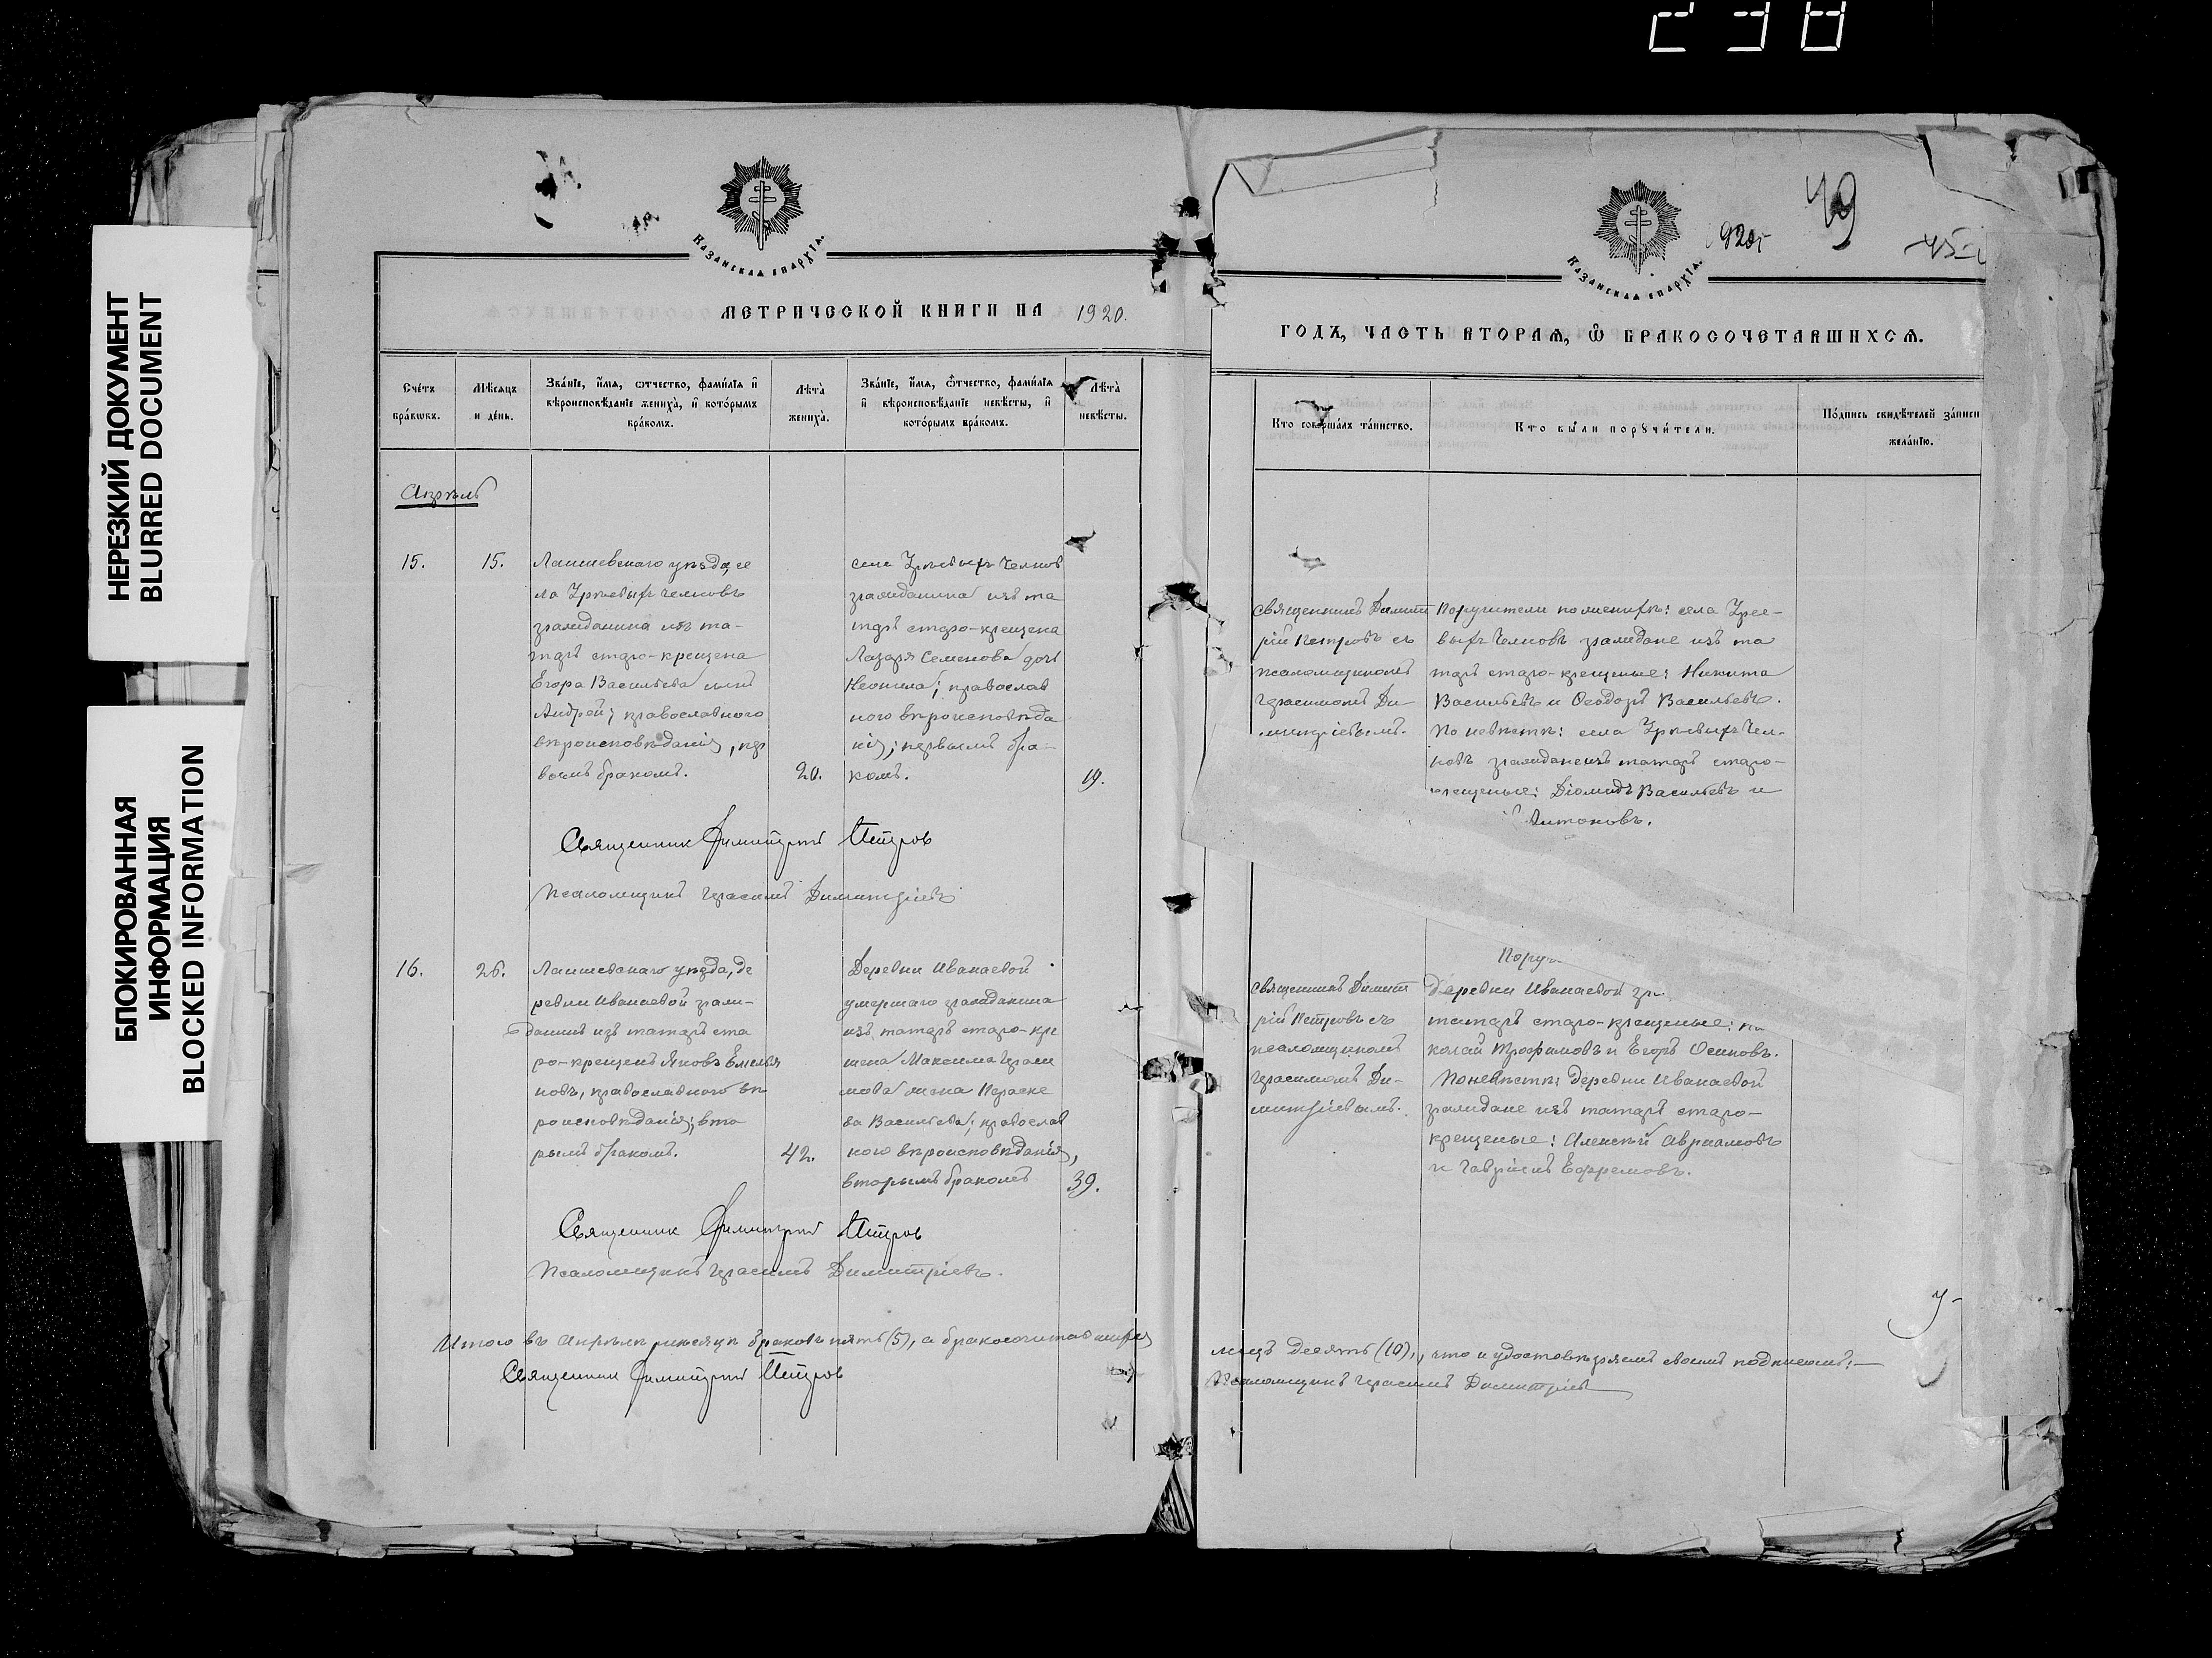 238
НЕРЕЗКИЙ ДОКУМЕНТ
BLURRED DOCUMENT
БЛОКИРОВАННАЯ
ИНФОРМАЦИЯ
BLOCKED INFORMATION
Казанская епархїа.
МЕТРИЧЕСКОЙ КНИГИ НА 1920.
Счéтъ бра́кωвъ.
Мѣ́сяцъ и де́нь.
Зва́нїе, и҆́мя, ѻ҆́тчество, фами́лїя и҆ вѣроисповѣ́данїе жениха̀, и҆ кото́рымъ бра́комъ.
Лѣта̀ жениха̀.
Зва́нїе, и҆́мя, ѻ҆́тчество, фами́лїя и҆ вѣроисповѣ́данїе невѣ́сты, и҆ кото́рымъ бра́комъ.
Лѣта̀ невѣ́сты.
Апрѣль
15.
15.
Лаишевскаго уѣзда, се
ла Урѣевыхъ Челновъ
гражданина изъ та-
таръ старо-крещена
Егора Васильева сынъ
Андрей; православного
вѣроисповѣданія, пер
вымъ бракомъ.
20.
села Урѣевыхъ Челнов
гражданина изъ та
таръ старо-крещена
Лазаря Семенова дочь
Неонила; православ
ного вѣроисповѣда
нія; первымъ бра-
комъ.
19.
Священник Димитрий Петров
Псаломщикъ Герасимъ Димитріевъ
16.
26.
Лаишевскаго уѣзда, де
ревни Иванаевой граж-
данинъ изъ татаръ ста
ро-крещенъ Яковъ Емелья
новъ, православного вѣ
роисповѣданія; вто
рымъ бракомъ.
42.
Деревни Иванаевой
умершаго гражданина
изъ татаръ старо-кре
щена Максима Гераси
мова жена Параске
ва Васильева; православ
ного вѣроисповѣданія,
вторымъ бракомъ
39.
Священник Димитрий Петров
Псаломщикъ Герасимъ Димитріевъ.
Итого въ Апрѣлѣ мѣсяцѣ браковъ пять (5), а бракосочитавшихся
Священник Димитрий Петров
Казанская епархїа.
1920г
49
ГОДЪ, ЧАСТЬ ВТОРАЯ, Ѽ БРАКОСОЧЕТАВШИХСЯ.
Кто соверша́лъ та́инство.
Кто бы́ли порꙋчи́тели.
По́дпись свидѣ́телей за́писи
жела́нїю.
Священникъ Димит
рій Петровъ съ
псаломщикомъ
Герасимомъ Ди
митріевымъ.
Поручители по женихѣ: села Урее-
выхъ Челновъ граждане изъ та
таръ старо-крещеные: Никита
Васильевъ и Ѳеодоръ Васильевъ.
По невѣстѣ: села Урѣевыхъ Чел-
новъ граждане изъ татаръ старо-
крещеные: Діомидъ Васильевъ и
Антоновъ.
Священникъ Димит
рій Петровъ съ
псаломщикомъ
Герасимомъ Ди-
митріевымъ.
Пору
деревни Иванаевой гр
татаръ старо-крещеные: Ни
колай Трофимовъ и Егоръ Осиповъ.
По невѣстѣ: деревни Иванаевой
граждане изъ татаръ старо-
крещеные: Алексѣй Авраамовъ
и Гавріилъ Ефремовъ.
лицъ десять (10), что и удостовѣряемъ своимъ подписомъ:—
Псаломщикъ Герасимъ Димитріевъ